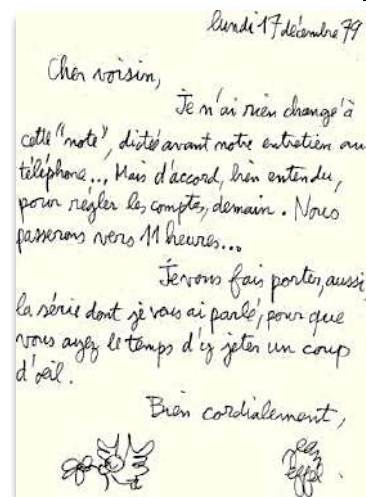 lundi 17 décembre 79
Cher voisin,
Je n'ai rien changé à
cette "note", dictée avant notre entretien au
téléphone... Mais d'accord, bien entendu,
pour régler les comptes, demain. Nous
passerons vers 11 heures...
Je vous fais porter, aussi,
la série dont je vous ai parlé, pour que
vous ayez le temps d'y jeter un coup
d'œil.
Bien cordialement,
Jean
Effel.